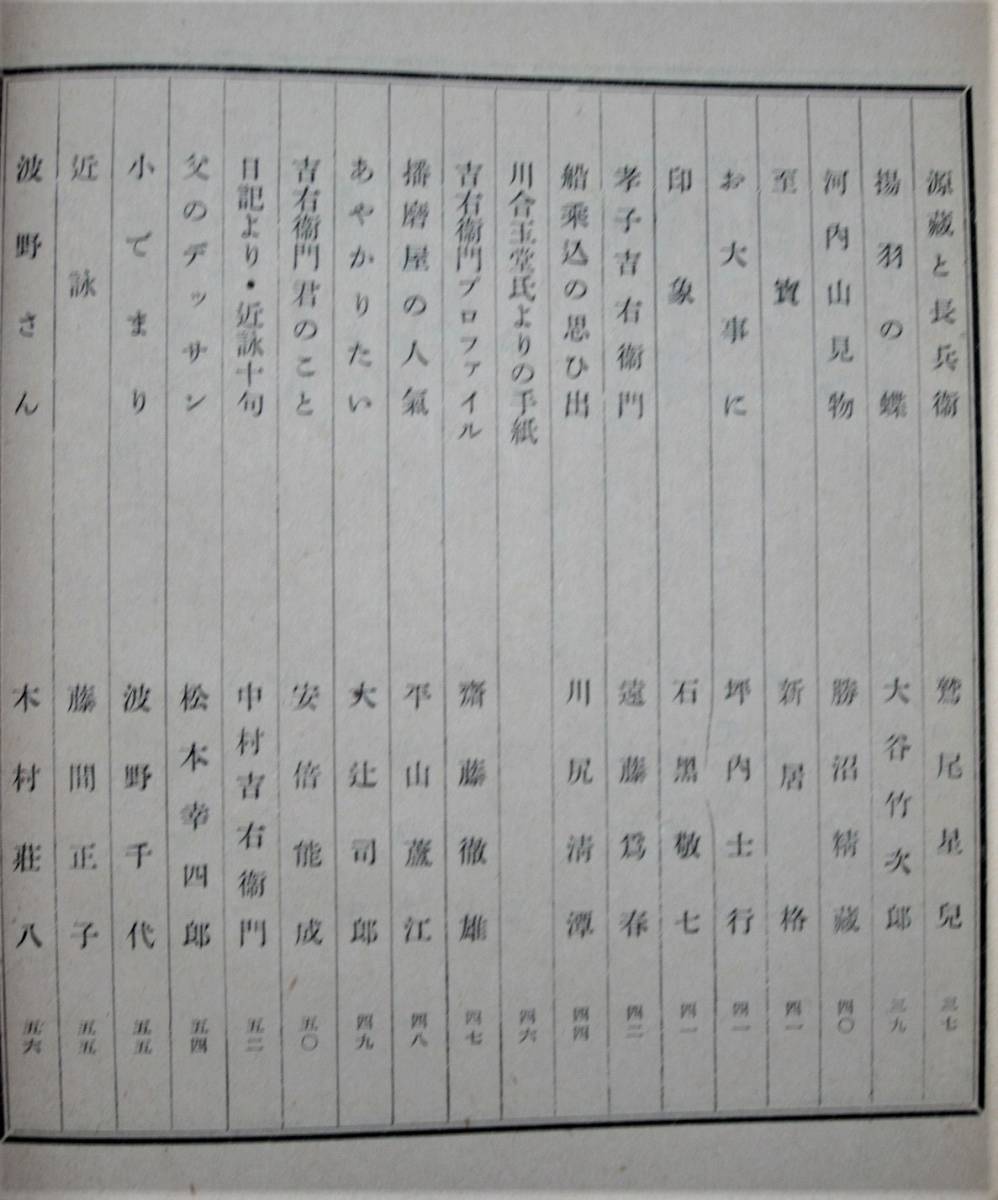 源藏と長兵衞 鷲尾星兒 三七
揚羽の蝶 大谷竹次郎 三九
河內山見物 勝沼精藏 四〇
至寶 新居格 四一
お大事に 坪內士行 四一
印象 石黑敬七 四一
孝子吉右衞門 遠藤爲春 四二
船乘込の思ひ出 川尻淸潭 四四
川合玉堂氏よりの手紙 四六
吉右衞門プロファイル 齋藤徹雄 四七
播磨屋の人氣 平山蘆江 四八
あやかりたい 大辻司郎 四九
吉右衞門君のこと 安倍能成 五〇
日記より・近詠十句 中村吉右衞門 五二
父のデッサン 松本幸四郎 五四
小でまり 波野千代 五五
近詠 藤間正子 五五
波野さん 木村莊八 五六